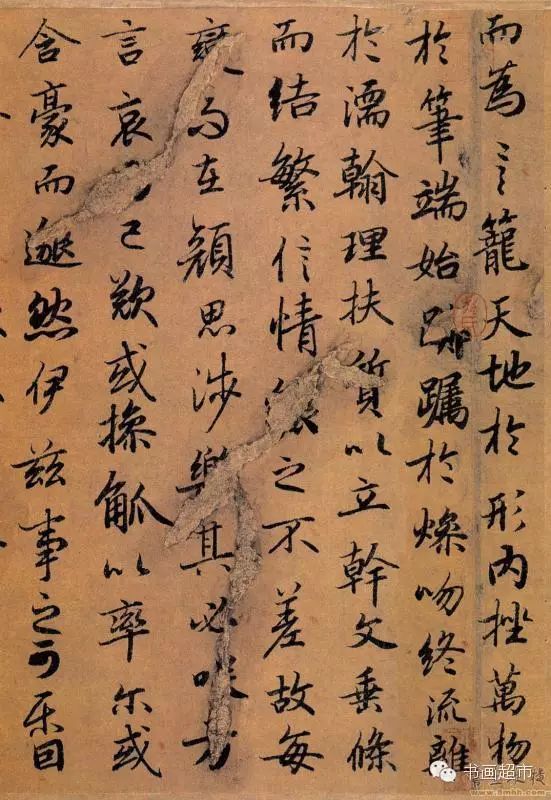 而為言籠天地於形內挫萬物
於筆端始躅於燥吻終流離
於濡翰理扶質以立幹文垂條
而結繁信情之不差故每
變而在顏思涉樂其必笑方
言哀已歎或操觚以率尔或
含豪而邈然伊茲事之可樂固
书画超市